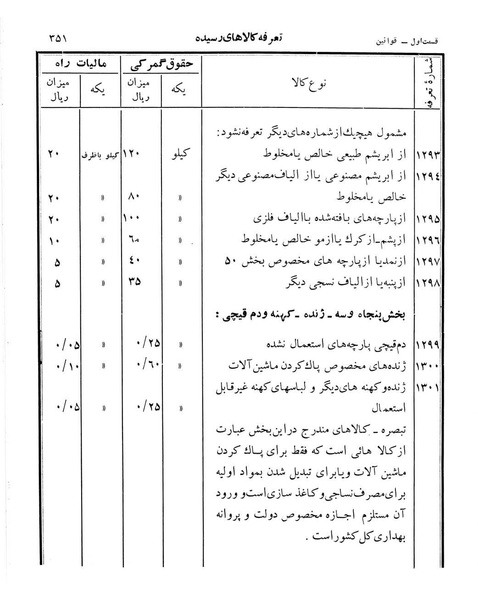 قسمت اول ــ قوانین تعرفه کالاهای رسیده ۳۵۱
شماره تعرفه نوع کالا حقوق گمرکی مالیات راه
یکه میزان ریال یکه میزان ریال
مشمول هیچیك از شماره‌های دیگر تعرفه نشود:
۱۲۹۳ از ابریشم طبیعی خالص یا مخلوط کیلو ۱۲۰ کیلو باظرف ۲۰
۱۲۹٤ از ابریشم مصنوعی یا از الیاف مصنوعی دیگر
خالص یا مخلوط » ۸۰ » ۲۰
۱۲۹۵ از پارچه‌های بافته شده با الیاف فلزی » ۱۰۰ » ۲۰
۱۲۹۶ از پشم ــ از کرك یا از مو خالص یا مخلوط » ۶۰ » ۱۰
۱۲۹۷ از نمد یا از پارچه های مخصوص بخش ۵۰ » ٤۰ » ۵
۱۲۹۸ از پنبه یا از الیاف نسجی دیگر » ۳۵ » ۵
بخش پنجاه وسه ــ ژنده ــ کهنه ودم قیچی :
۱۲۹۹ دم قیچی پارچه‌های استعمال نشده » ۰/۲۵ » ۰/۰۵
۱۳۰۰ ژنده‌های مخصوص پاك کردن ماشین آلات » ۰/۶۰ » ۰/۱۰
۱۳۰۱ ژنده و کهنه های دیگر و لباسهای کهنه غیرقابل
استعمال » ۰/۲۵ » ۰/۰۵
تبصره ــ کالاهای مندرج دراین بخش عبارت
از کالا هائی است که فقط برای پاك کردن
ماشین آلات ویا برای تبدیل شدن بمواد اولیه
برای مصرف نساجی و کاغذ سازی است و ورود
آن مستلزم اجازه مخصوص دولت و پروانه
بهداری کل کشور است .